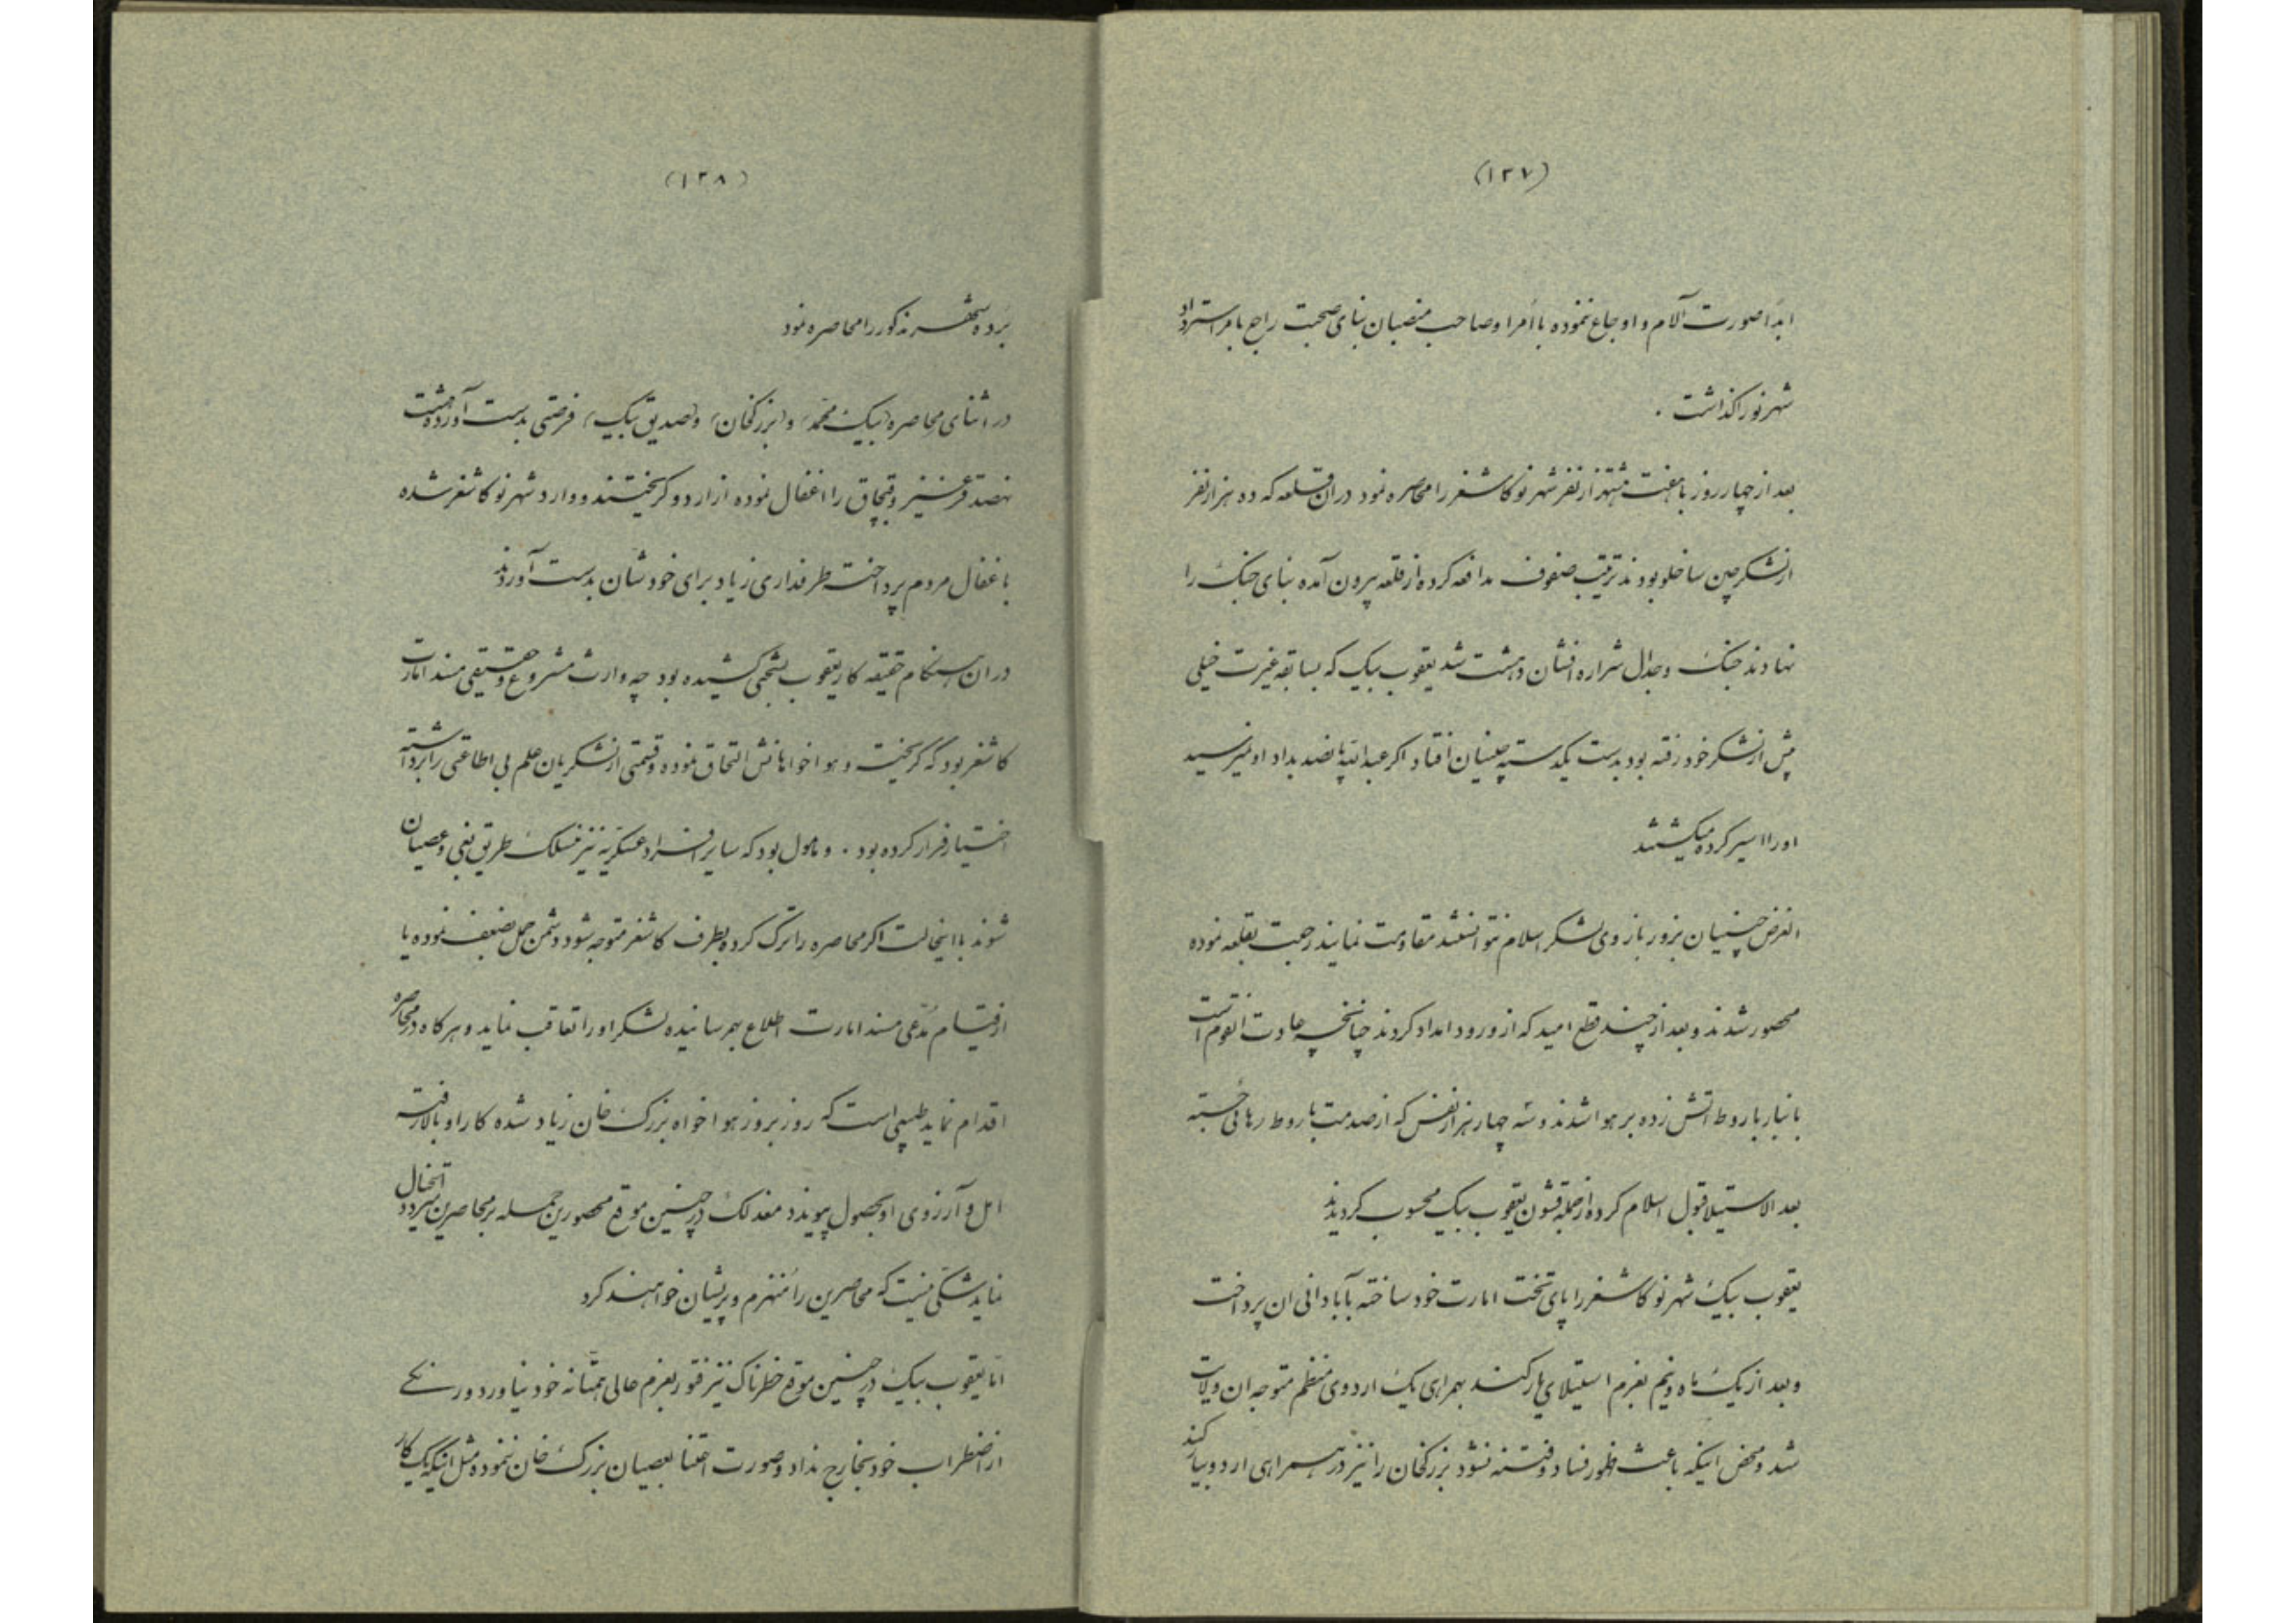 (۱۳۷)
ابداً صورت آلام و اوجاع ننموده با اُمرا و صاحب منصبان بنای صحبت راجع بامر استرداد
شهر نو را کذاشت .
بعد از چهار روز با هفت هشتهزار نفر شهر نو کاشغر را محاصره نمود در ان قلعه که ده هزار نفر
از لشکر چین ساخلو بودند ترتیب صفوف مدافعه کرده از قلعه بیرون آمده بنای جنک را
نهادند جنک و جدال شراره افشان دهشت شد یعقوب بیک که بسابقه غیرت خیلی
پیش از لشکر خود رفته بود بدست یکدسته چینیان افتاد اکر عبدالله پانصد بداد او نمیرسید
اورا اسیر کرده میکشتند
الغرض چینیان بزور بازوی لشکر اسلام نتوانستند مقاومت نمایند رجعت بقلعه نموده
محصور شدند و بعد از چند قطع امید که از ورود امداد کردند چنانچه عادت انقوم است
بانبار باروط اتش زده بر هوا شدند و سه چهار هزار نفس که از صدمت باروط رهائی جسته
بعد الاستیلا قبول اسلام کرده از جمله قشون یعقوب بیک محسوب کردیدند
یعقوب بیک شهر نو کاشغر را پای تخت امارت خود ساخته بآبادانی ان پرداخت
و بعد از یک ماه و نیم بعزم استیلای یارکند بهمرای یک اردوی منظم متوجه ان ولایت
شد و محض اینکه باعث ظهور فساد و فتنه نشود بزرکخان را نیز در همراهی اردو بیارکند
(۱۳۸)
بَرده شهر مذکور را محاصره نمود
در اثنای محاصره (بیک محمد) و (بزرکخان) و (صدیق بیک) فرصتی بدست آورده هشت
نهصد قرغیز و قبچاق را اغفال نموده از اردو کریختند و وارد شهر نو کاشغر شده
باغفال مردم پرداخت طرفداری زیاد برای خودشان بدست آوردند
در ان هنکام حقیقه کار یعقوب بسختی کشیده بود چه وارث مشروع و حقیقی مسند امارت
کاشغر بود که کریخت و هواخواهانش التحاق نموده و قسمتی از لشکریان علم بی اطاعتی را برداشته
اختیار فرار کرده بود . و مامول بود که سایر افراد عسکریه نیز منسلک طریق بغی و عصیان
شوند با اینحالت اکر محاصره را ترک کرده بطرف کاشغر متوجه شود دشمن حمل بضعف نموده یا
از قیام مُدّعی مسند امارت اطلاع بهمرسانیده لشکر او را تعاقب نماید و هرکاه در محاصره
اقدام نماید طبیعی است که روز بروز هواخواه بزرک خان زیاد شده کار او بالا رفته
امل و آرزوی او بحصول پیوندد معذلک در چنین موقع محصورین حمله بر محاصرین اتخال
نماید شکّی نیست که محاصرین را مُنهزم و پریشان خواهند کرد
امّا یعقوب بیک در چنین موقع خطرناک نیز فتور بعزم عالی همتانه خود نیاورد و رنکے
از اضطراب خود بخارج نداد و صورت اعتنا بعصیان بزرک خان ننموده مثل اینکه یک کار